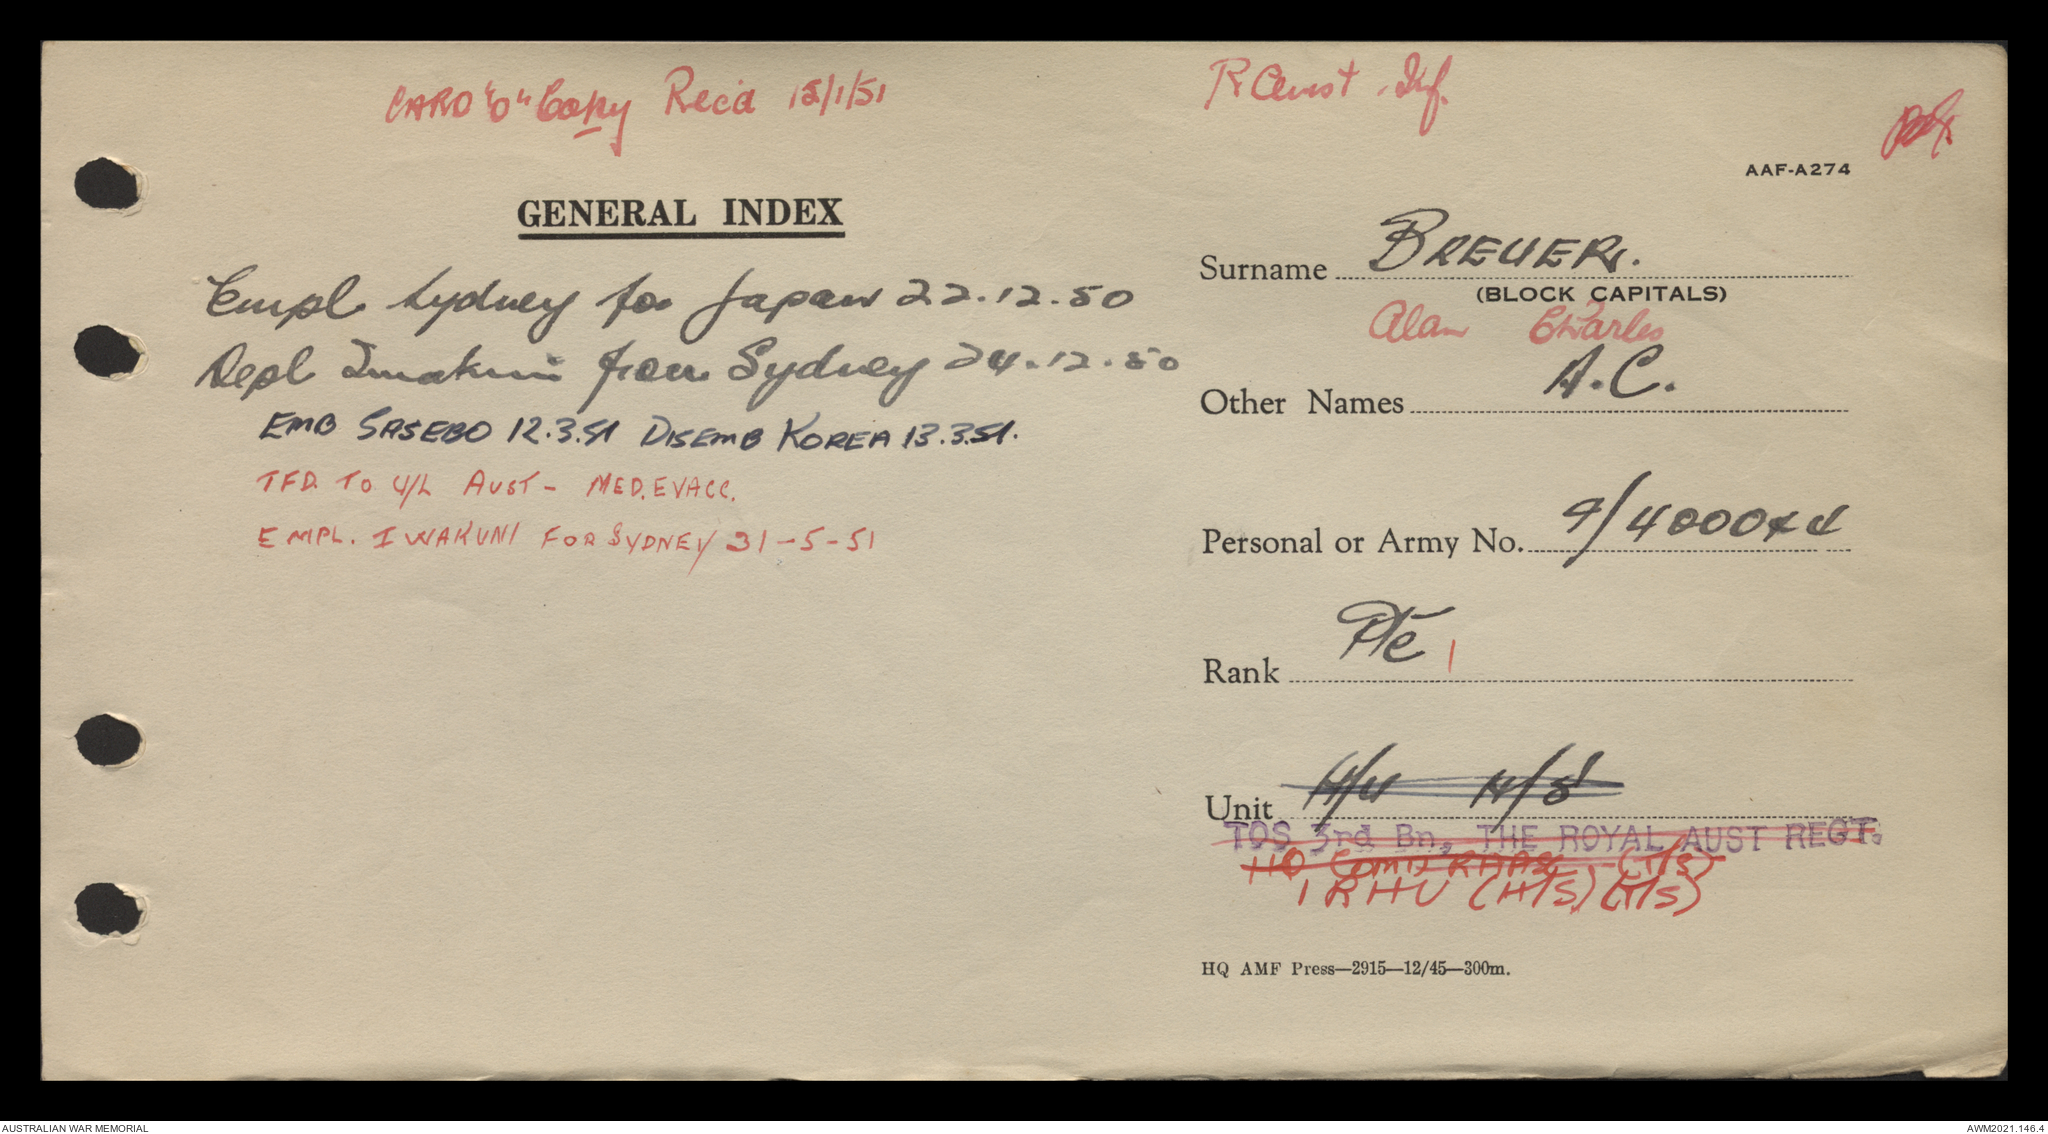 CARO "O" Copy Recd 15/1/51
R Aust Inf.
AAF-A274
GENERAL INDEX
Empl Sydney for Japan 22.12.50
Depl Iwakuni from Sydney 24.12.50
EMB SASEBO 12.3.51 DISEMB KOREA 13.3.51.
TFD. TO Y/L AUST - MED. EVACC.
EMPL. IWAKUNI FOR SYDNEY 31-5-51
Surname BREUER.
(BLOCK CAPITALS)
Alan Charles
Other Names A.C.
Personal or Army No. 4/400044
Rank Pte 1
Unit
TOS 3rd Bn, THE ROYAL AUST REGT.
HQ (T/S)
1 RHU (H/S) (T/S)
HQ AMF Press—2915—12/45—300m.
AUSTRALIAN WAR MEMORIAL
AWM2021.146.4